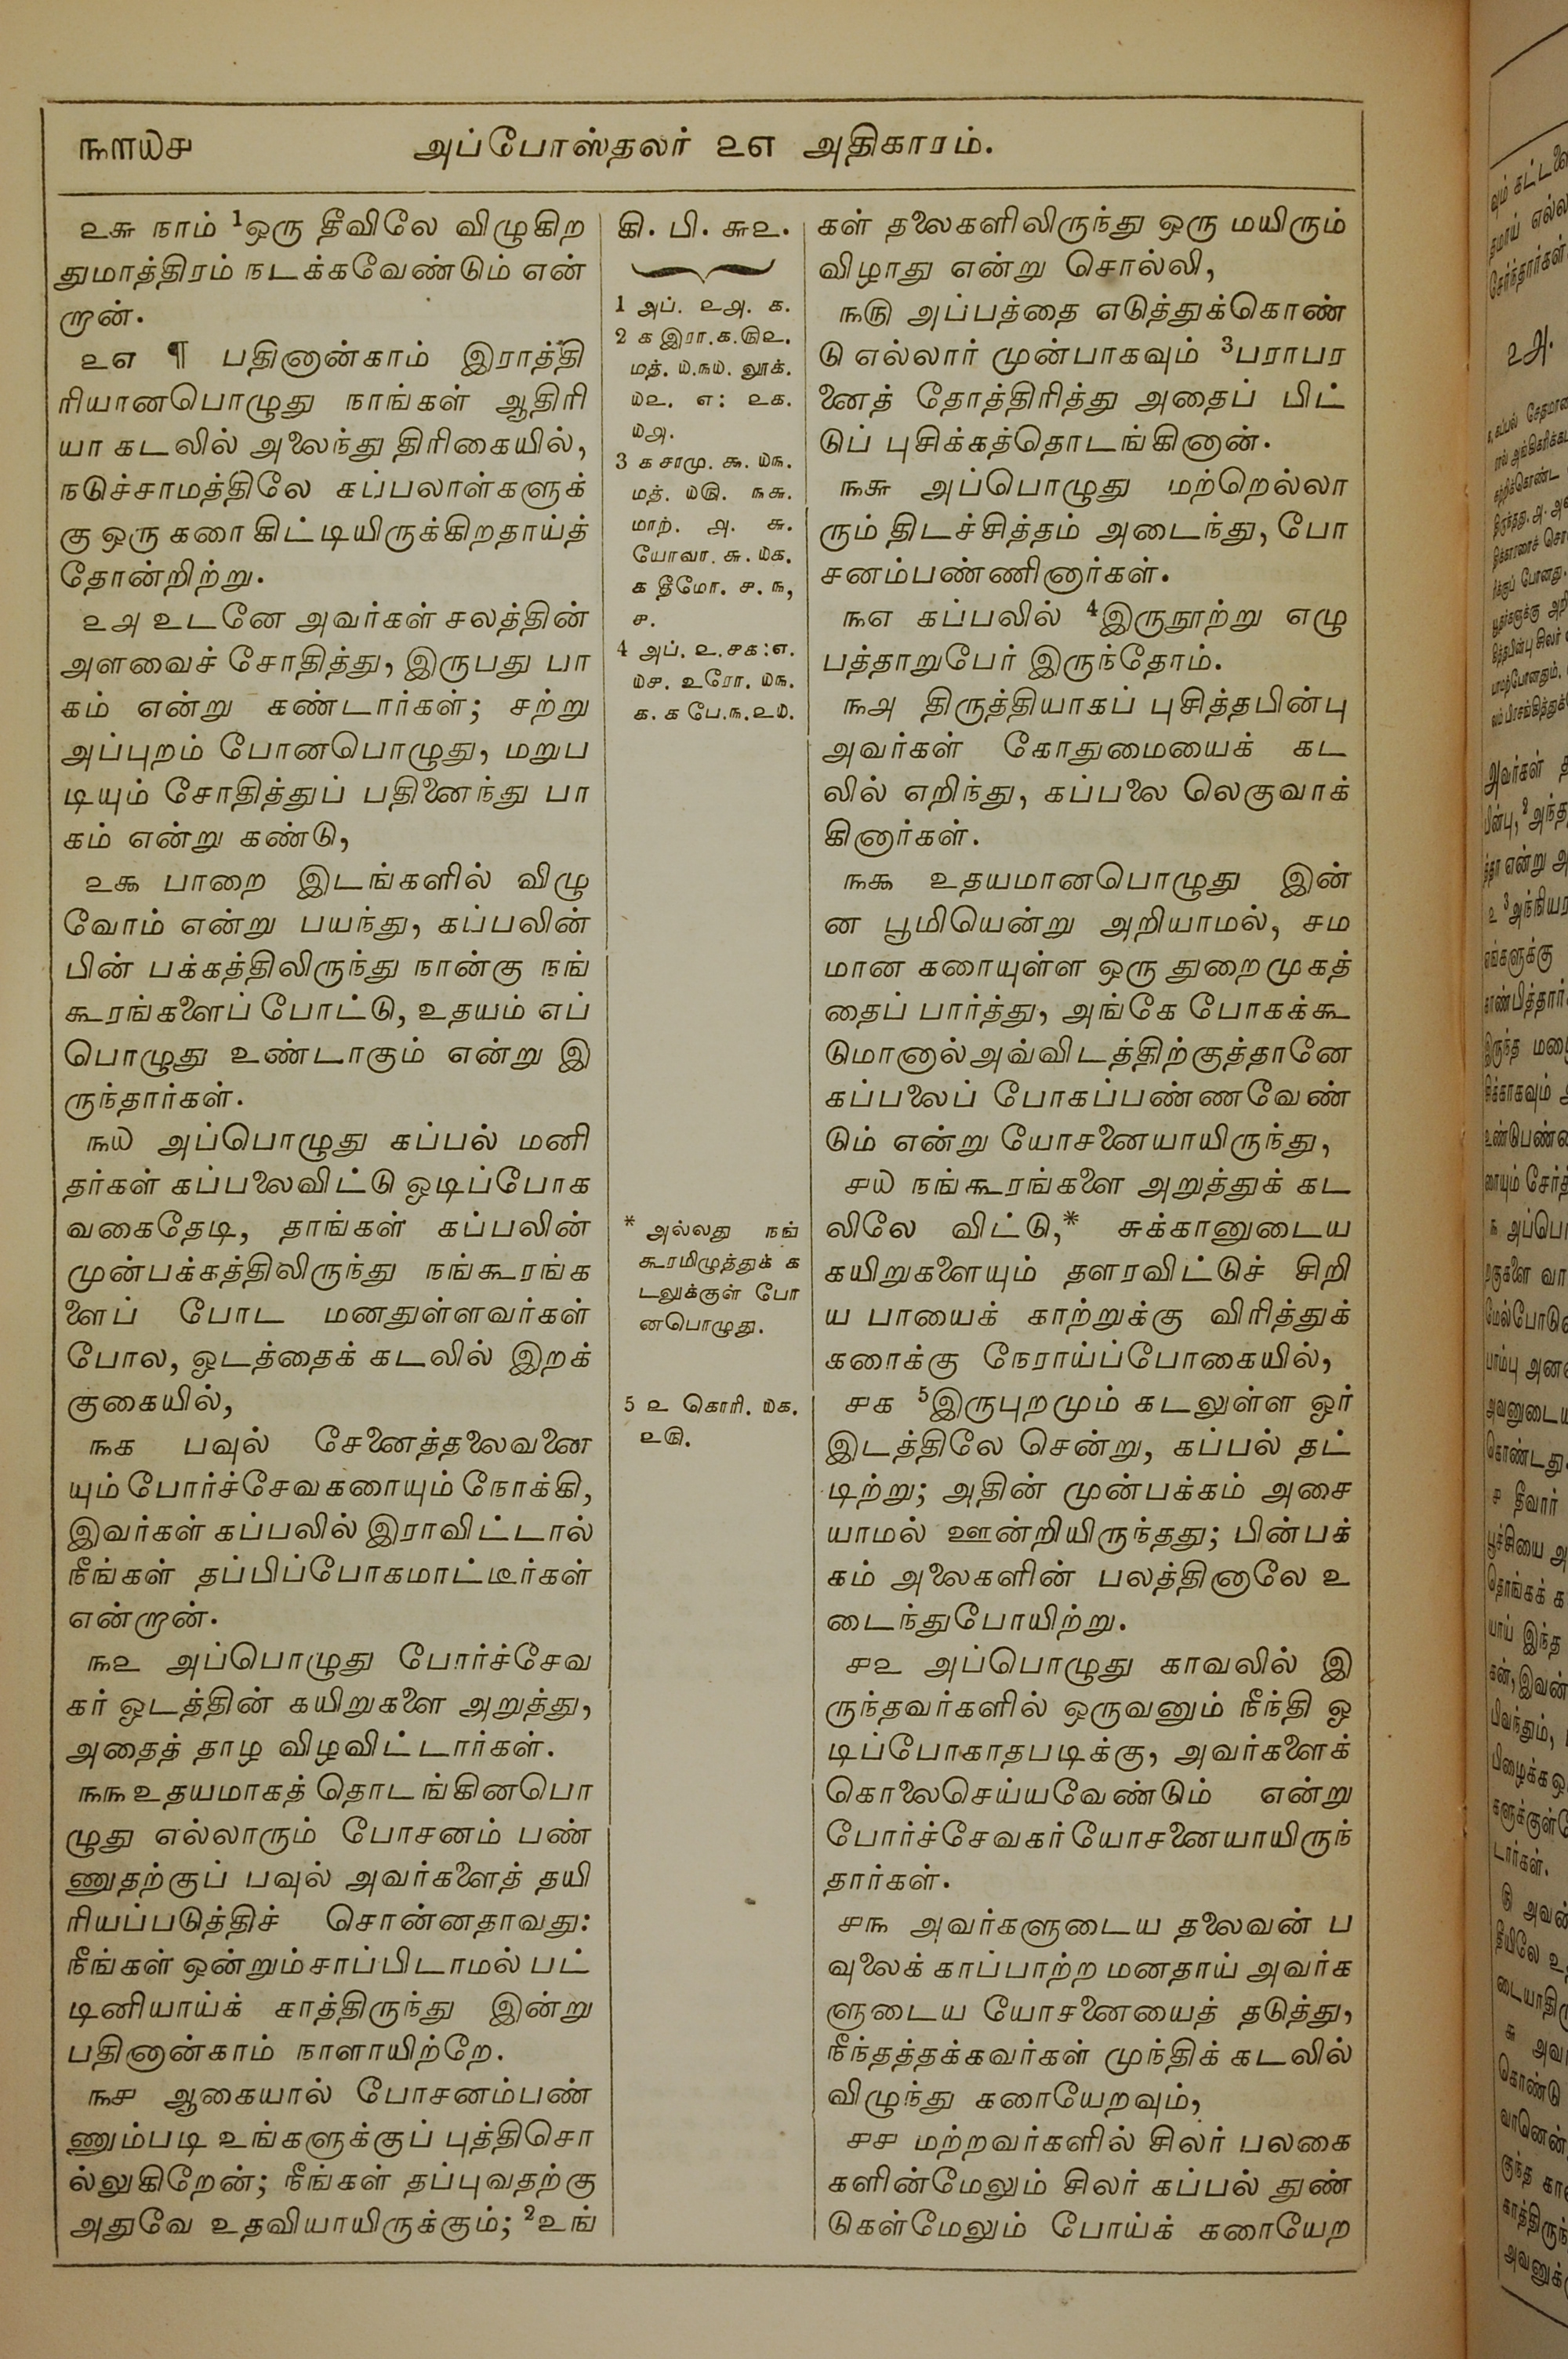 ௩௱௰௪ அப்போஸ்தலர் ௨௭ அதிகாரம்.
௨௬ நாம் 1ஒரு தீவிலே விழுகிற
துமாத்திரம் நடக்கவேண்டும் என்
றான்.
௨௭ ¶ பதினான்காம் இராத்தி
ரியானபொழுது நாங்கள் ஆதிரி
யா கடலில் அலைந்து திரிகையில்,
நடுச்சாமத்திலே கப்பலாள்களுக்
கு ஒரு கரை கிட்டியிருக்கிறதாய்த்
தோன்றிற்று.
௨௮ உடனே அவர்கள் சலத்தின்
அளவைச் சோதித்து, இருபது பா
கம் என்று கண்டார்கள்; சற்று
அப்புறம் போனபொழுது, மறுப
டியும் சோதித்துப் பதினைந்து பா
கம் என்று கண்டு,
௨௯ பாறை இடங்களில் விழு
வோம் என்று பயந்து, கப்பலின்
பின் பக்கத்திலிருந்து நான்கு நங்
கூரங்களைப் போட்டு, உதயம் எப்
பொழுது உண்டாகும் என்று இ
ருந்தார்கள்.
௩௰ அப்பொழுது கப்பல் மனி
தர்கள் கப்பலைவிட்டு ஓடிப்போக
வகைதேடி, தாங்கள் கப்பலின்
முன்பக்கத்திலிருந்து நங்கூரங்க
ளைப் போட மனதுள்ளவர்கள்
போல, ஓடத்தைக் கடலில் இறக்
குகையில்,
௩௧ பவுல் சேனைத்தலைவனை
யும் போர்ச்சேவகரையும் நோக்கி,
இவர்கள் கப்பலில் இராவிட்டால்
நீங்கள் தப்பிப்போகமாட்டீர்கள்
என்றான்.
௩௨ அப்பொழுது போர்ச்சேவ
கர் ஓடத்தின் கயிறுகளை அறுத்து,
அதைத் தாழ விழவிட்டார்கள்.
௩௩ உதயமாகத் தொடங்கினபொ
ழுது எல்லாரும் போசனம் பண்
ணுதற்குப் பவுல் அவர்களைத் தயி
ரியப்படுத்திச் சொன்னதாவது:
நீங்கள் ஒன்றும் சாப்பிடாமல் பட்
டினியாய்க் காத்திருந்து இன்று
பதினான்காம் நாளாயிற்றே.
௩௪ ஆகையால் போசனம்பண்
ணும்படி உங்களுக்குப் புத்திசொ
ல்லுகிறேன்; நீங்கள் தப்புவதற்கு
அதுவே உதவியாயிருக்கும்; 2உங்
கி. பி. ௬௨.
1 அப். ௨௮. ௧.
2 ௧ இரா.௧.௫௨.
மத். ௰.௩௰. லூக்.
௰௨. ௭: ௨௧.
௰௮.
3 ௧ சாமு. ௯. ௰௩.
மத். ௰௫. ௩௬.
மாற். ௮. ௬.
யோவா. ௬. ௰௧.
௧ தீமோ. ௪. ௩,
௪.
4 அப். ௨.௪௧:௭.
௰௪. உரோ. ௰௩.
௧. ௧ பே.௩.௨௰.
* அல்லது நங்
கூரமிழுத்துக் க
டலுக்குள் போ
னபொழுது.
5 ௨ கொரி. ௰௧.
௨௫.
கள் தலைகளிலிருந்து ஒரு மயிரும்
விழாது என்று சொல்லி,
௩௫ அப்பத்தை எடுத்துக்கொண்
டு எல்லார் முன்பாகவும் 3பராபர
னைத் தோத்திரித்து அதைப் பிட்
டுப் புசிக்கத்தொடங்கினான்.
௩௬ அப்பொழுது மற்றெல்லா
ரும் திடச்சித்தம் அடைந்து, போ
சனம்பண்ணினார்கள்.
௩௭ கப்பலில் 4இருநூற்று எழு
பத்தாறுபேர் இருந்தோம்.
௩௮ திருத்தியாகப் புசித்தபின்பு
அவர்கள் கோதுமையைக் கட
லில் எறிந்து, கப்பலை லெகுவாக்
கினார்கள்.
௩௯ உதயமானபொழுது இன்
ன பூமியென்று அறியாமல், சம
மான கரையுள்ள ஒரு துறைமுகத்
தைப் பார்த்து, அங்கே போகக்கூ
டுமானால் அவ்விடத்திற்குத்தானே
கப்பலைப் போகப்பண்ணவேண்
டும் என்று யோசனையாயிருந்து,
௪௰ நங்கூரங்களை அறுத்துக் கட
லிலே விட்டு,* சுக்கானுடைய
கயிறுகளையும் தளரவிட்டுச் சிறி
ய பாயைக் காற்றுக்கு விரித்துக்
கரைக்கு நேராய்ப்போகையில்,
௪௧ 5இருபுறமும் கடலுள்ள ஓர்
இடத்திலே சென்று, கப்பல் தட்
டிற்று; அதின் முன்பக்கம் அசை
யாமல் ஊன்றியிருந்தது; பின்பக்
கம் அலைகளின் பலத்தினாலே உ
டைந்துபோயிற்று.
௪௨ அப்பொழுது காவலில் இ
ருந்தவர்களில் ஒருவனும் நீந்தி ஓ
டிப்போகாதபடிக்கு, அவர்களைக்
கொலைசெய்யவேண்டும் என்று
போர்ச்சேவகர் யோசனையாயிருந்
தார்கள்.
௪௩ அவர்களுடைய தலைவன் ப
வுலைக் காப்பாற்ற மனதாய் அவர்க
ளுடைய யோசனையைத் தடுத்து,
நீந்தத்தக்கவர்கள் முந்திக் கடலில்
விழுந்து கரையேறவும்,
௪௪ மற்றவர்களில் சிலர் பலகை
களின்மேலும் சிலர் கப்பல் துண்
டுகள்மேலும் போய்க் கரையேற